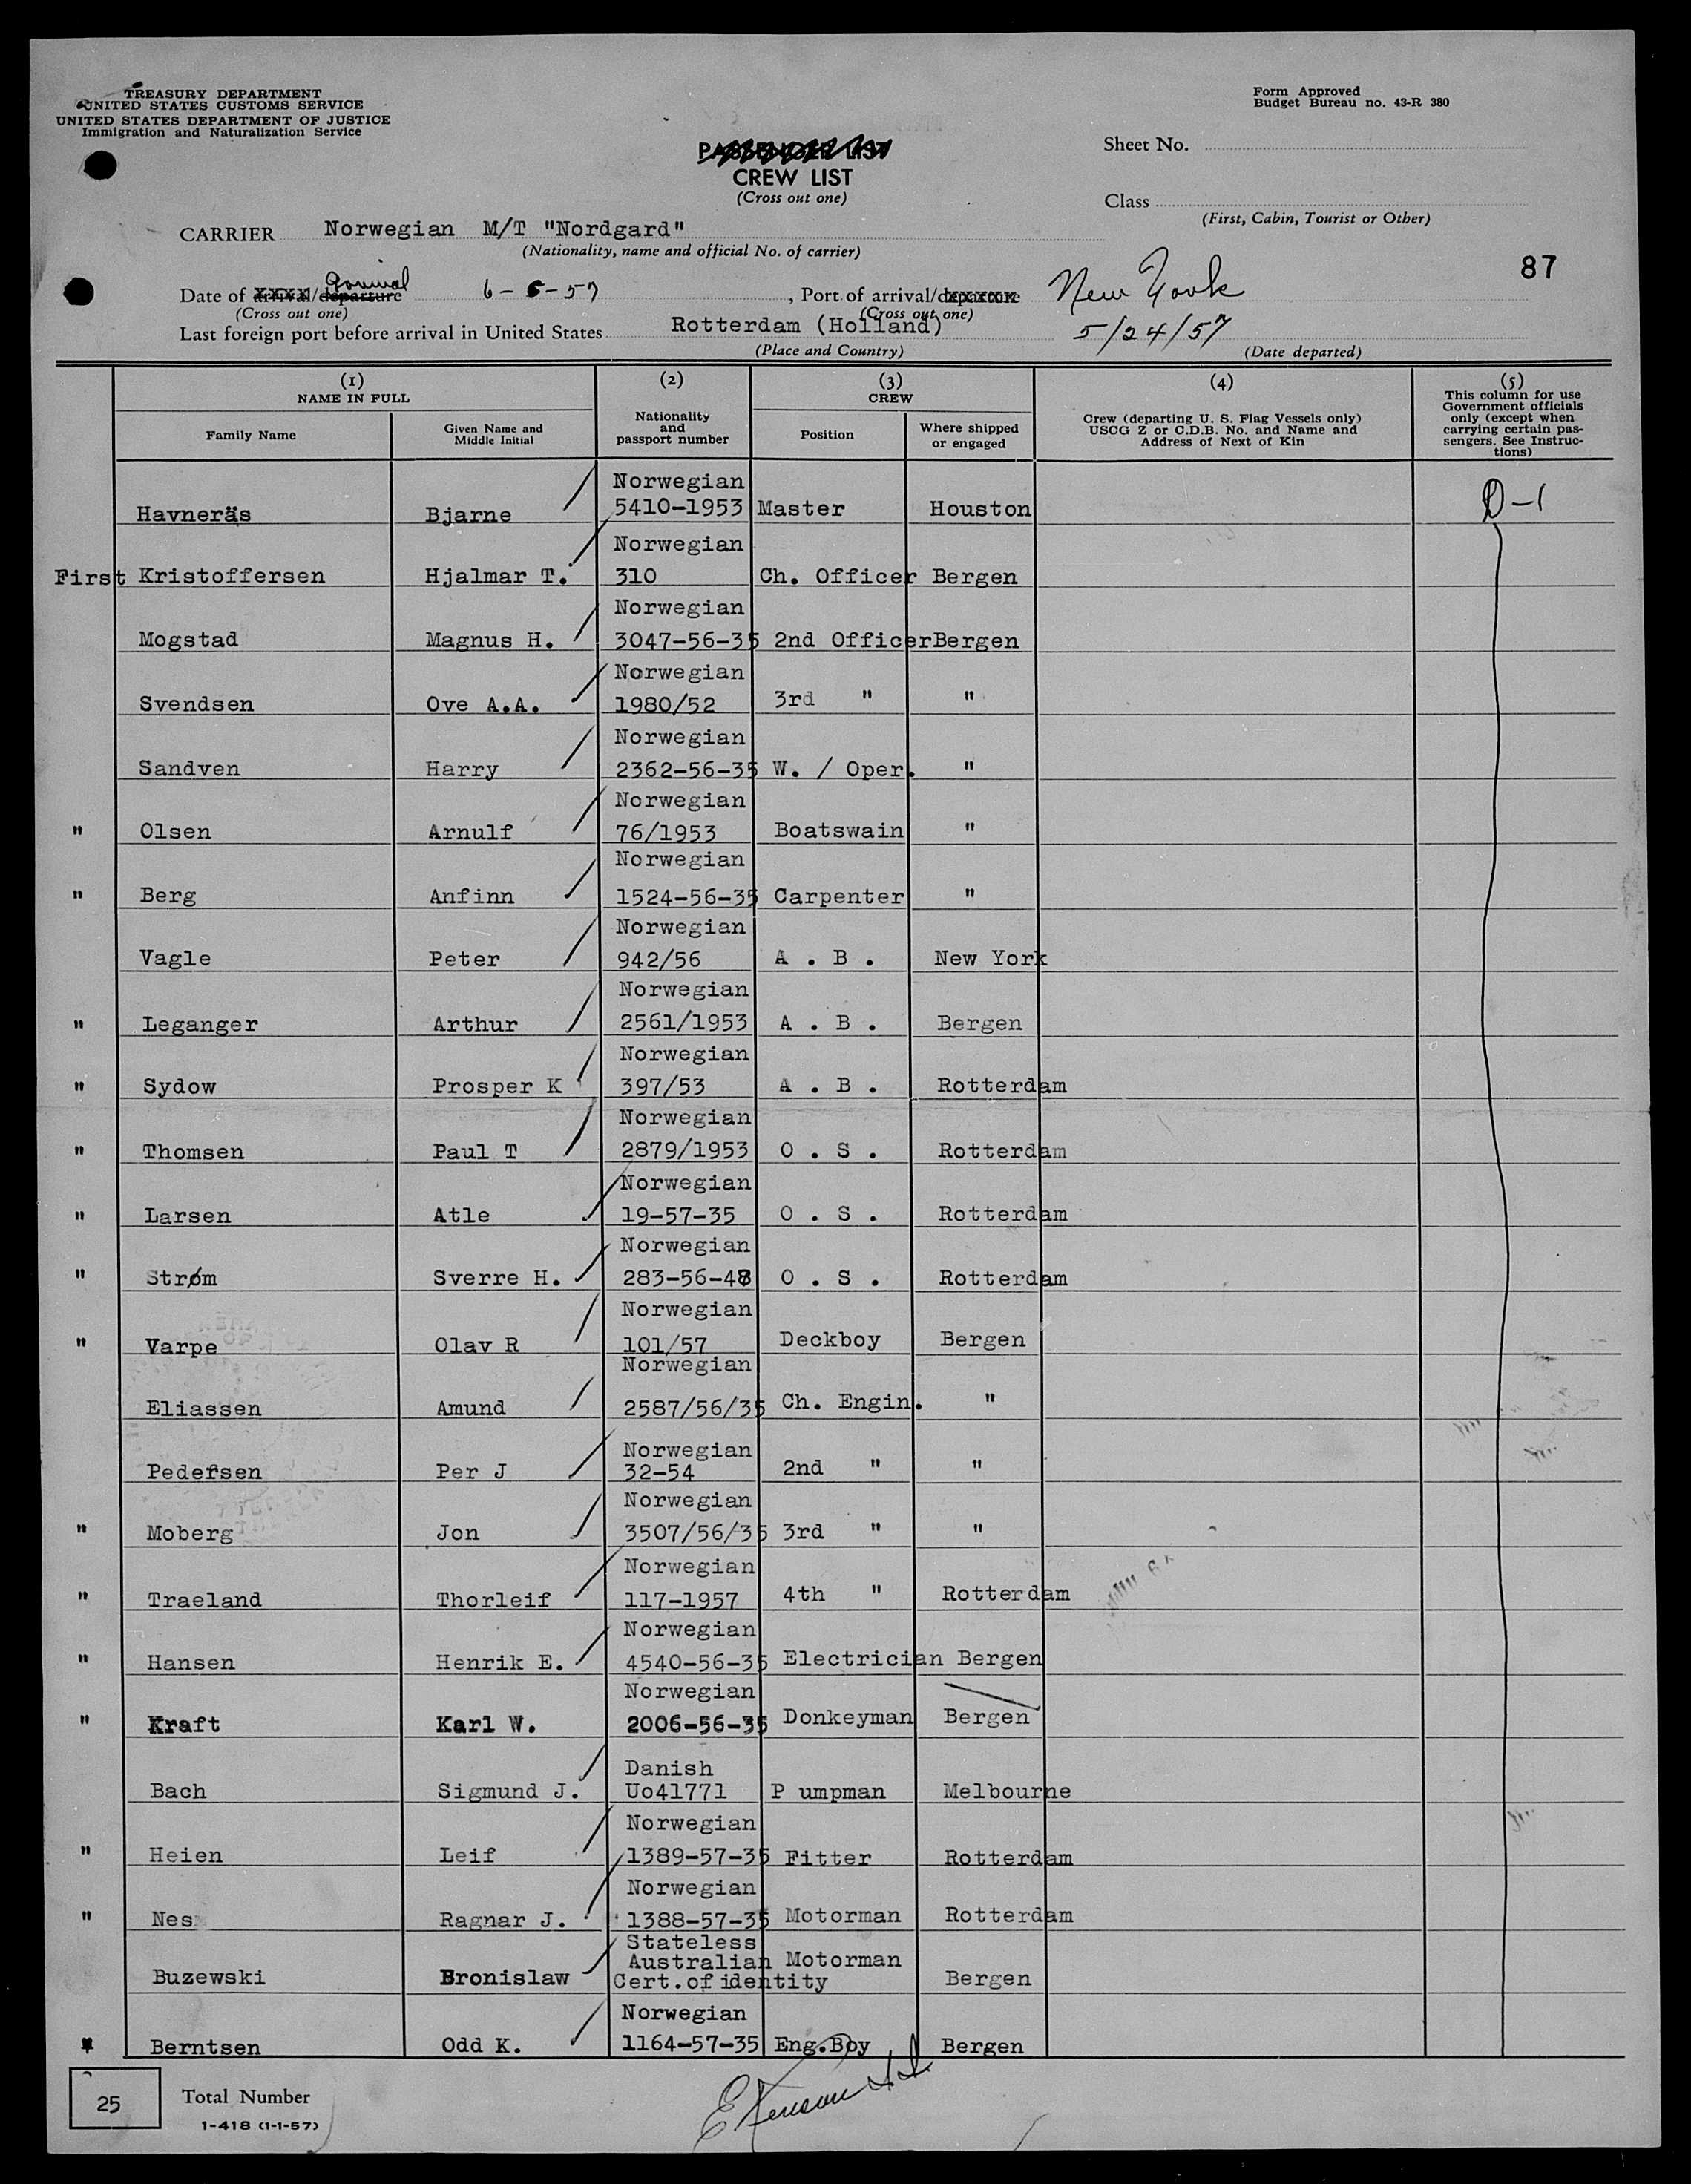 TREASURY DEPARTMENT
UNITED STATES CUSTOMS SERVICE
UNITED STATES DEPARTMENT OF JUSTICE
Immigration and Naturalization Service
Form Approved
Budget Bureau no. 43-R 380
PASSENGER LIST
CREW LIST
(Cross out one)
Sheet No.
Class
(First, Cabin, Tourist or Other)
CARRIER Norwegian M/T "Nordgard"
(Nationality, name and official No. of carrier)
87
Date of arrival/departure arrival 6-5-57, Port of arrival/departure New York
(Cross out one) (Cross out one)
Last foreign port before arrival in United States Rotterdam (Holland) 5/24/57
(Place and Country) (Date departed)
(1) (2) (3) (4) (5)
NAME IN FULL
Family Name
Given Name and Middle Initial
Nationality and passport number
CREW
Position
Where shipped or engaged
Crew (departing U. S. Flag Vessels only) USCG Z or C.D.B. No. and Name and Address of Next of Kin
This column for use Government officials only (except when carrying certain passengers. See Instructions)
Norwegian
Havneräs Bjarne 5410-1953 Master Houston D-1
Norwegian
First Kristoffersen Hjalmar T. 310 Ch. Officer Bergen
Norwegian
Mogstad Magnus H. 3047-56-35 2nd Officer Bergen
Norwegian
Svendsen Ove A.A. 1980/52 3rd " "
Norwegian
Sandven Harry 2362-56-35 W. / Oper. "
Norwegian
" Olsen Arnulf 76/1953 Boatswain "
Norwegian
" Berg Anfinn 1524-56-35 Carpenter "
Norwegian
Vagle Peter 942/56 A . B . New York
Norwegian
" Leganger Arthur 2561/1953 A . B . Bergen
Norwegian
" Sydow Prosper K 397/53 A . B . Rotterdam
Norwegian
" Thomsen Paul T 2879/1953 O . S . Rotterdam
Norwegian
" Larsen Atle 19-57-35 O . S . Rotterdam
Norwegian
" Strøm Sverre H. 283-56-48 O . S . Rotterdam
Norwegian
" Varpe Olav R 101/57 Deckboy Bergen
Norwegian
Eliassen Amund 2587/56/35 Ch. Engin. "
Norwegian
Pedersen Per J 32-54 2nd " "
Norwegian
" Moberg Jon 3507/56/35 3rd " "
Norwegian
" Traeland Thorleif 117-1957 4th " Rotterdam
Norwegian
" Hansen Henrik E. 4540-56-35 Electrician Bergen
Norwegian
" Kraft Karl W. 2006-56-35 Donkeyman Bergen
Danish
Bach Sigmund J. Uo41771 P umpman Melbourne
Norwegian
" Heien Leif 1389-57-35 Fitter Rotterdam
Norwegian
" Nes Ragnar J. 1388-57-35 Motorman Rotterdam
Stateless
Australian Motorman
Buzewski Bronislaw Cert.of identity Bergen
Norwegian
" Berntsen Odd K. 1164-57-35 Eng.Boy Bergen
25 Total Number
1-418 (1-1-57)